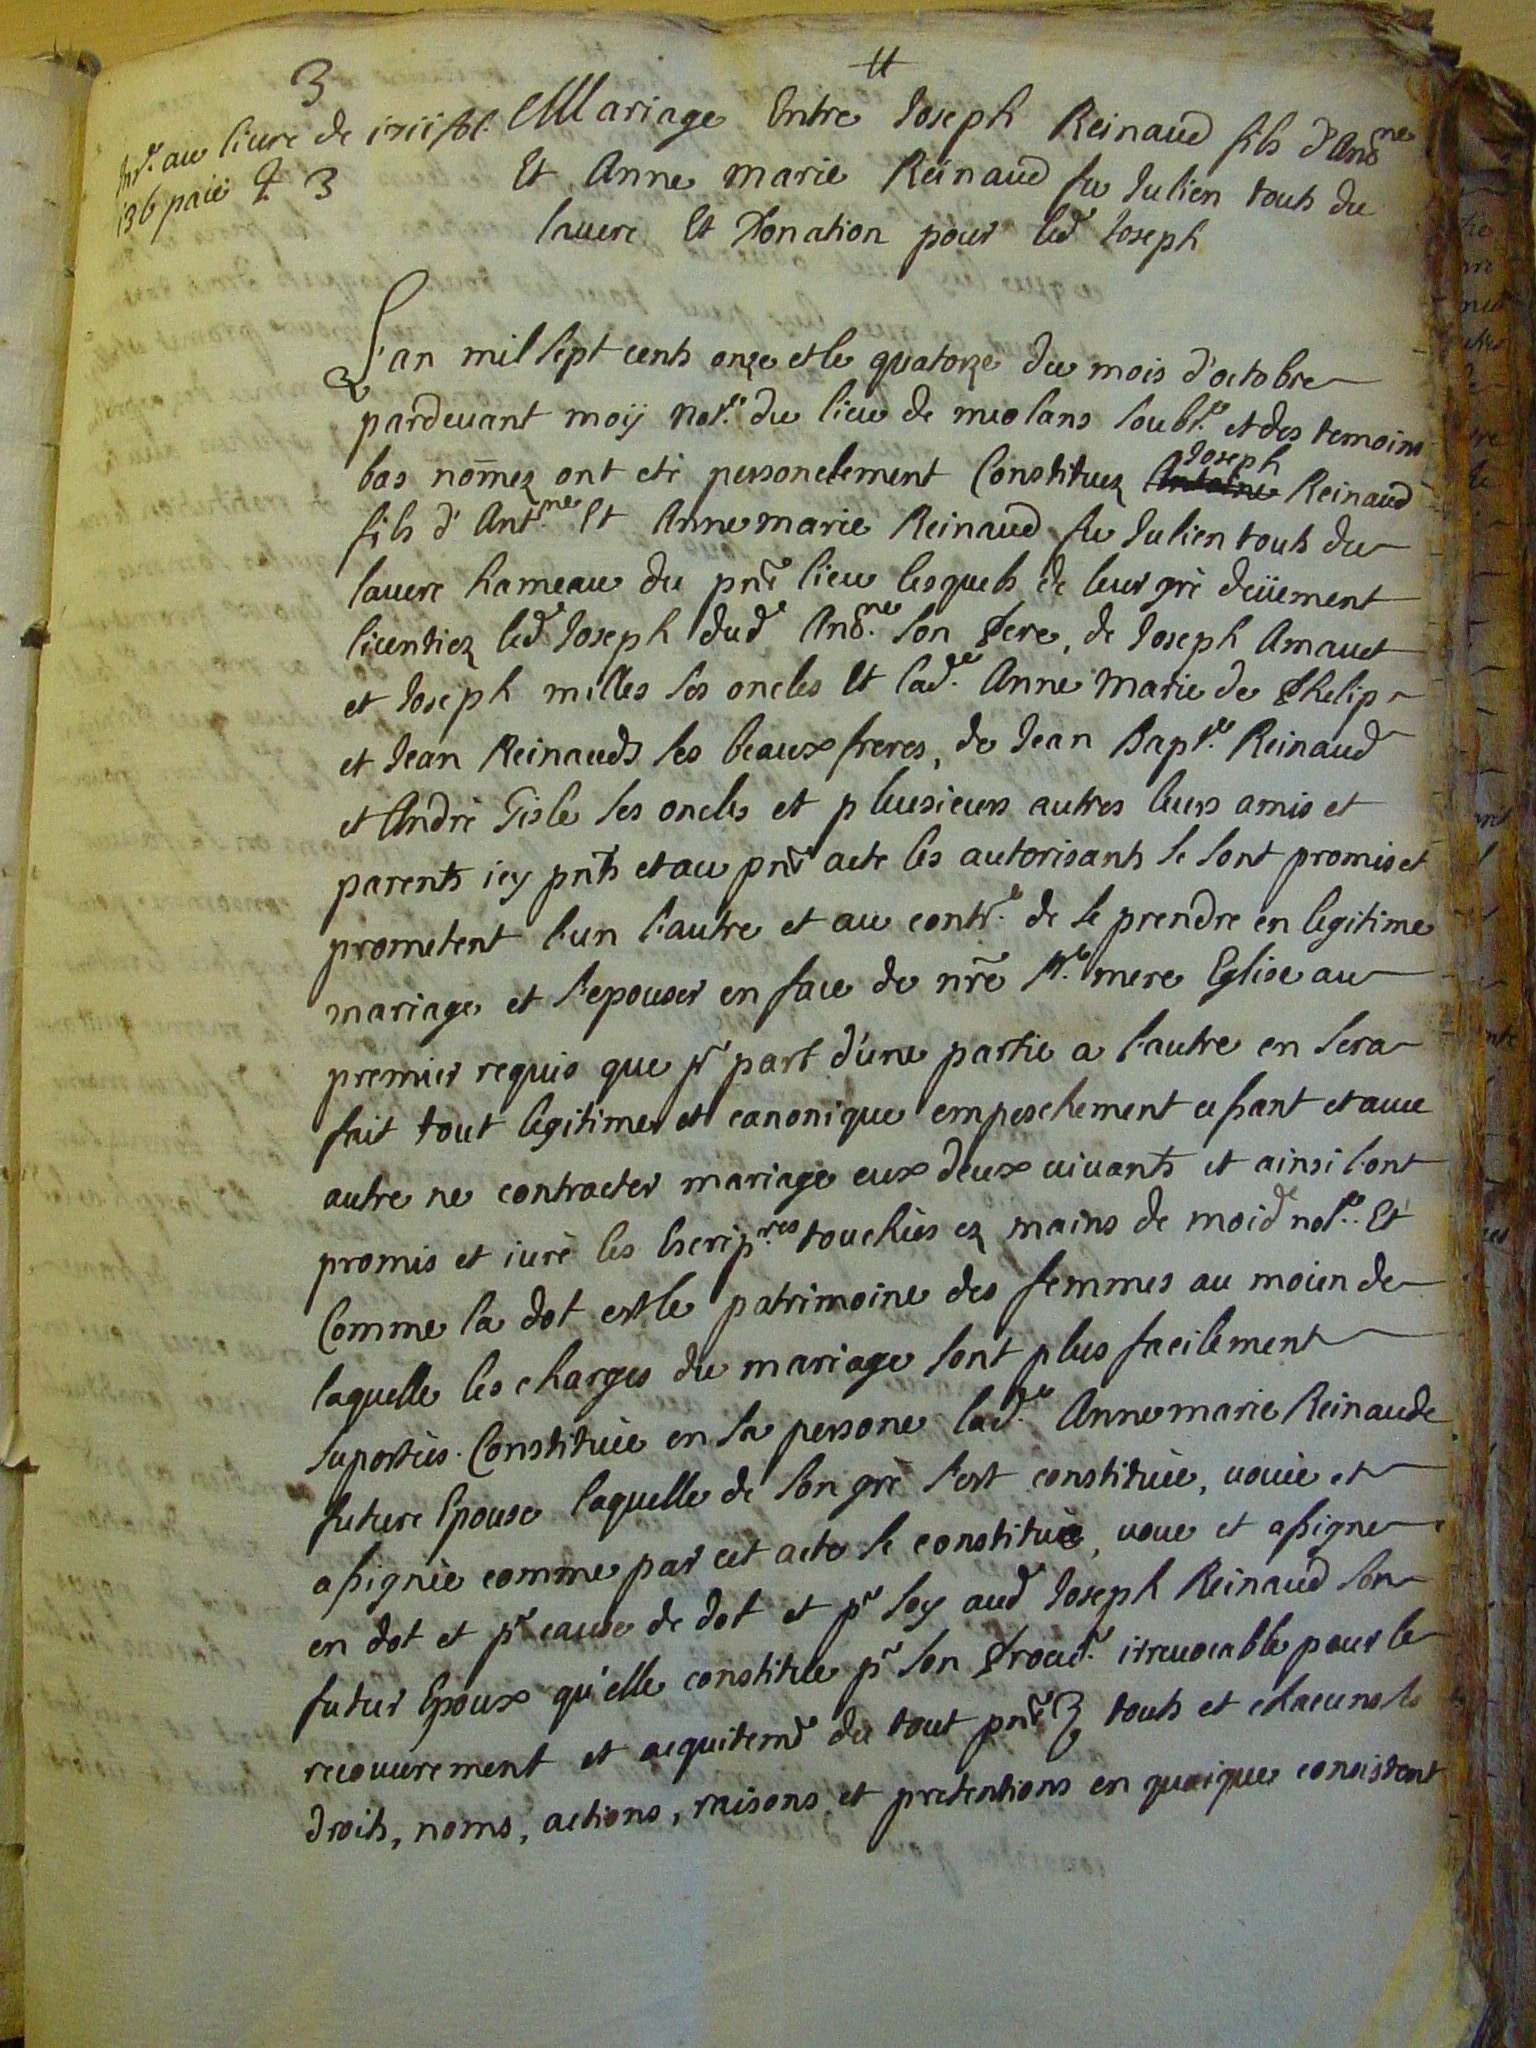 3
au livre de 1711 fol.
136 paié # 3
Mariage Entre Joseph Reinaud fils d'Antne
Et Anne marie Reinaud fu Julien touts du
lavere Et Donation pour led Joseph
L'an mil sept cents onze et le quatorze du mois d'octobre
pardevant moÿ notre. du lieu de meolans soubné et des temoins
bas nom̄ez ont eté personelement Constituez Joseph Reinaud
fils d'Antne Et Anne marie Reinaud fu Julien touts du
lavere hameau du pnt lieu lesquels de leur gré deüement
licentiez led Joseph dud Antne. son Pere, de Joseph Amavet
et Joseph milles ses oncles Et lade. Anne Marie de Phelip
et Jean Reinauds ses beaux freres, de Jean Bapte. Reinaud
et André Tisle ses oncles et pluusieurs autres leurs amis et
parents icy pnts et au pnt acte les autorisants se sont promis et
prometent l'un l'autre et au contre. de se prendre en legitime
mariage et s'epouser en face de nr̄e Ste. mere Eglise au
premier requis que pr part d'une partie a l'autre en sera
fait tout legitime et canonique empeschement cessant et avec
autre ne contracter mariage eux deux vivants et ainsi l'ont
promis et juré les Escripres touchées ez mains de moid notre. Et
Comme la dot est le patrimoine des femmes au moien de
laquelle les charges du mariage sont plus facilement
suportées. Constituée en sa persone lade. Anne marie Reinaude
future Epouse laquelle de son gré s'est constituée, vouée et
assignée comme par cet acte se constitue, voue et assigne
en dot et pr cause de dot et pr soy aud Joseph Reinaud son
futur Epoux qu'elle constitue pr son Procur. irrevocable pour le
recouvrement et acquitemt du tout pnt touts et chacuns ses
droits, noms, actions, raisons et pretentions en quoique consistent